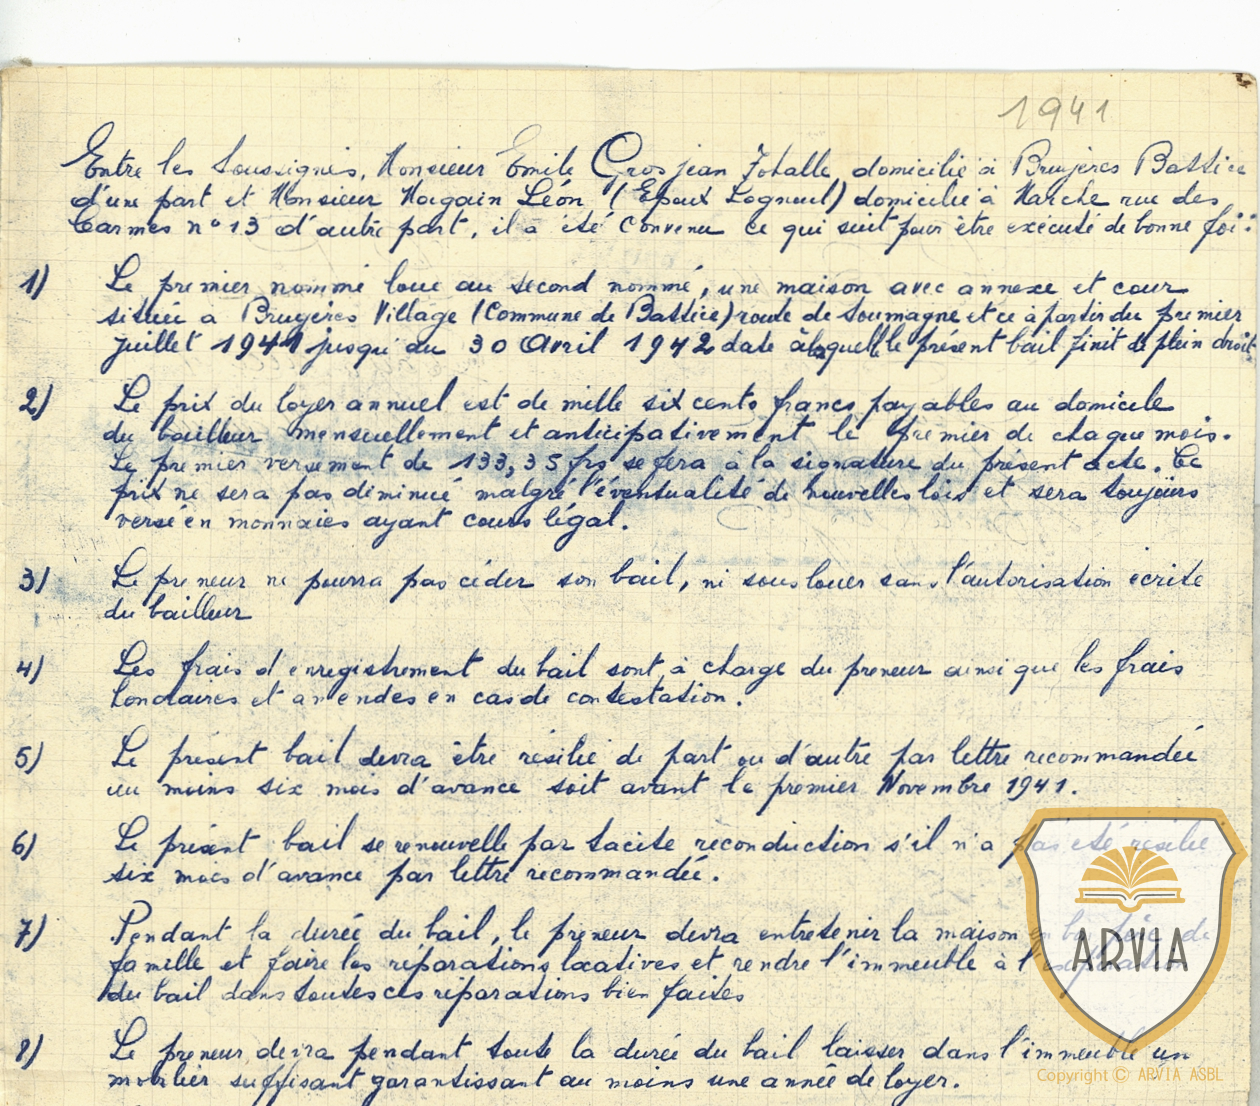 1941
Entre les Soussignés, Monsieur Emile Grosjean Tohalle, domicilié à Bruyères Battice
d'une part et Monsieur Magain Léon (Epoux Logneul) domicilié à Marche rue des
Carmes n° 13 d'autre part, il a été convenu ce qui suit pour être exécuté de bonne foi:
1) Le premier nommé loue au second nommé, une maison avec annexe et cour
située à Bruyères Village (Commune de Battice) route de Soumagne et ce à partir du premier
juillet 1941 jusqu'au 30 Avril 1942 date à laquelle le présent bail finit de plein droit.
2) Le prix du loyer annuel est de mille six cents francs payables au domicile
du bailleur mensuellement et anticipativement le premier de chaque mois.
Le premier versement de 133,35 frs se fera à la signature du présent acte. Ce
prix ne sera pas diminué malgré l'éventualité de nouvelles lois et sera toujours
versé en monnaies ayant cours légal.
3) Le preneur ne pourra pas céder son bail, ni sous louer sans l'autorisation écrite
du bailleur
4) Les frais d'enregistrement du bail sont à charge du preneur ainsi que les frais
et amendes en cas de contestation.
5) Le présent bail devra être résilié de part ou d'autre par lettre recommandée
au moins six mois d'avance soit avant le premier Novembre 1941.
6) Le présent bail se renouvelle par tacite reconduction s'il n'a pas été résilié
six mois d'avance par lettre recommandée.
7) Pendant la durée du bail, le preneur devra entretenir la maison en bon père de
famille et faire les réparations locatives et rendre l'immeuble à l'expiration
du bail dans toutes ces réparations bien faites
8) Le preneur devra pendant toute la durée du bail laisser dans l'immeuble un
mobilier suffisant garantissant au moins une année de loyer.
ARVIA
Copyright © ARVIA ASBL